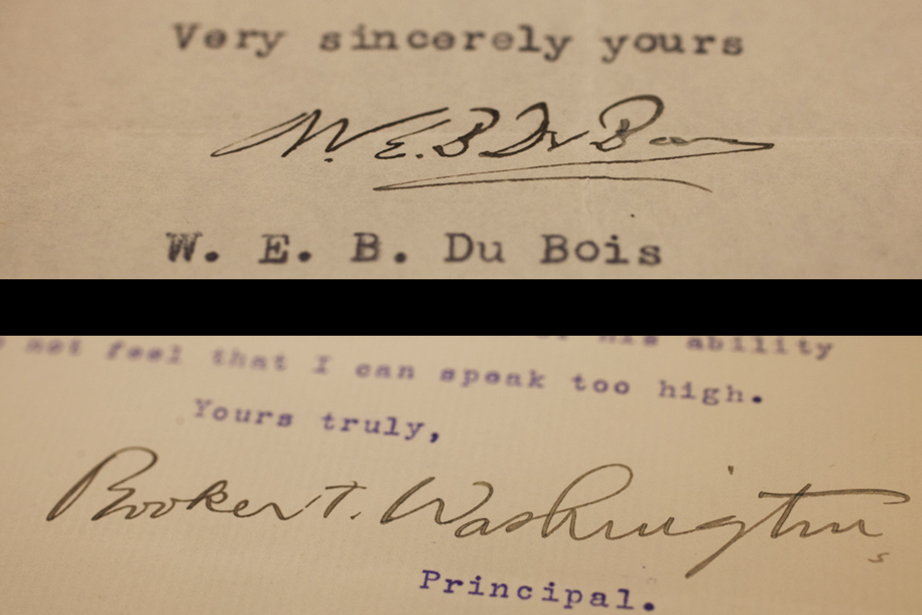 Very sincerely yours
W. E. B Du Bois
W. E. B. Du Bois
his ability
not feel that I can speak too high.
Yours truly,
Booker T. Washington
Principal.